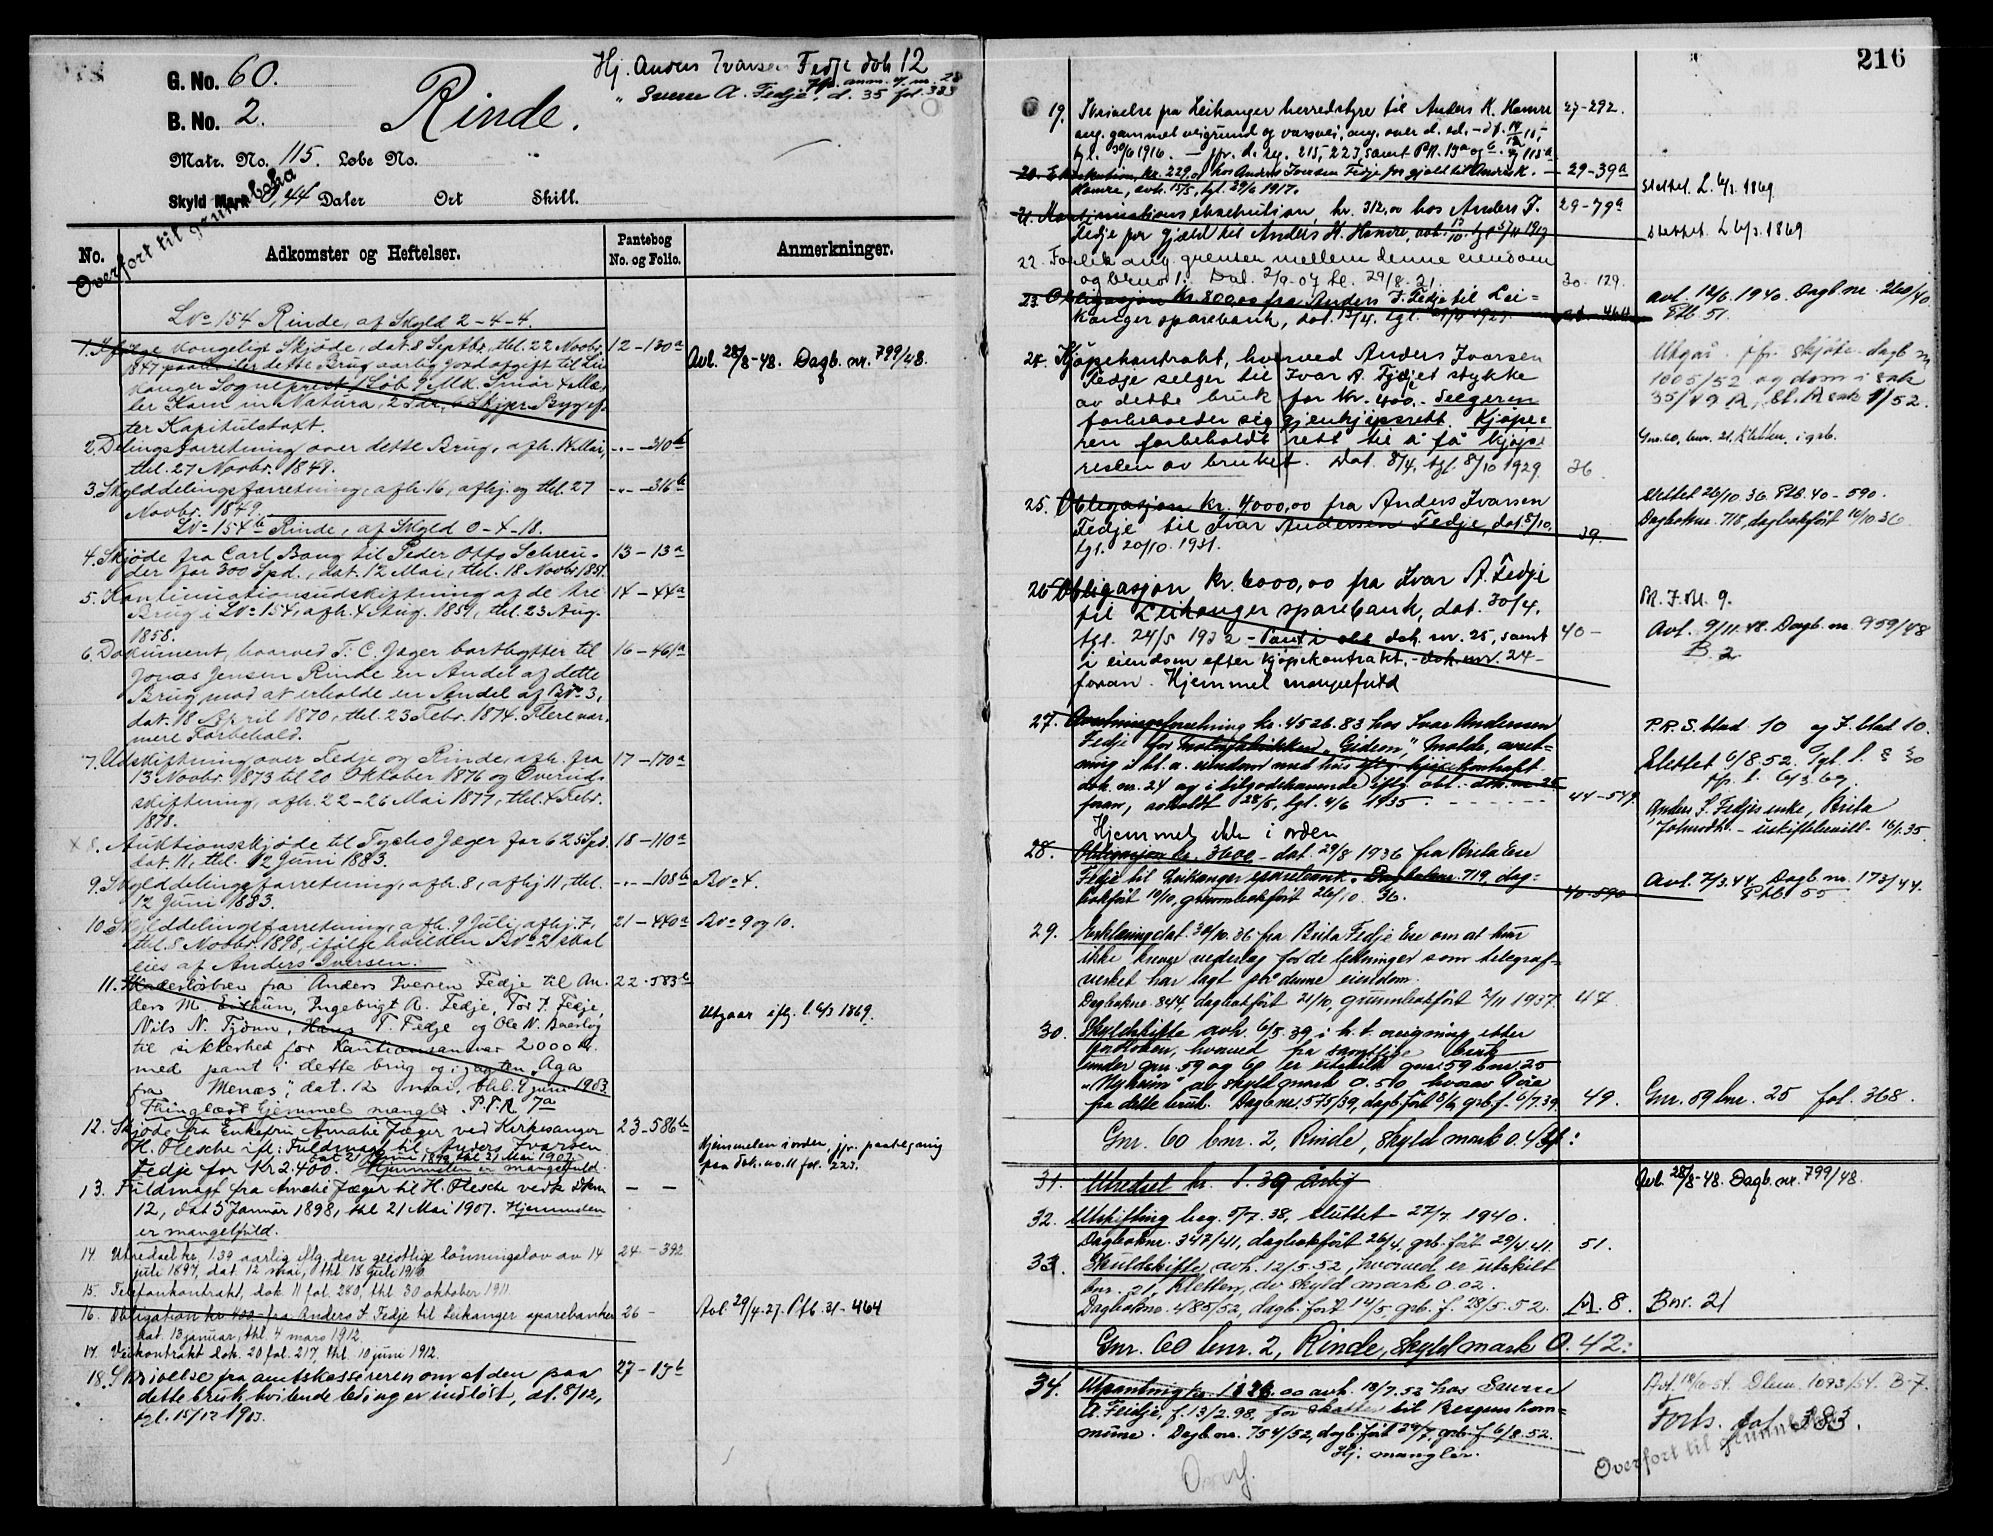 G. No. 60.
B. No. 2.
Rinde.
Hj. Anders Ivarsen Fedje dok 12
" Sverre A. Fedje, d. 35 fol. 383
Matr. No. 115. Løbe No.
Skyld Mark 0,44 Daler Ort Skill.
Overført til grunnboka
No. Adkomster og Heftelser. Pantebog No. og Folio. Anmerkninger.
LNo 154 Rinde, af Skyld 2-4-4.
1. Ifølge Kongeligt Skjøde, dat. 8 Septbr, thl. 22 Novbr. 12-130a
1847 paahviler dette Brug aarlig Jordafgift til Lei-
kanger Sogneprest 1 Løb 9 Mk. Smør 4 Mæ- Avl. 28/8-48. Dagb. nr. 799/48.
ler Korn in Natura, 2 Fdr. 6 Skjpr. Byg ef-
ter Kapitulstaxt.
2. Delingsforretning over dette Brug, afh. 14 Mai, -"- -310b
thl. 27 Novbr. 1849.
3. Skylddelingsforretning, afh. 16, afhj. og thl. 27 -"- -316b
Novbr. 1849.
LNo 154b Rinde, af Skyld 0-4-18.
4. Skjøde fra Carl Bang til Peder Otto Schreu- 13-13a
der for 300 Spd., dat. 12 Mai, thl. 18 Novbr. 1851.
5. Kontinuationsudskiftning af de tre 14-44a
Brug i LNo 154, afh. 4 Aug. 1857, thl. 23 Aug.
1858.
6. Document, hvorved T. C. Jæger bortbytter til 16-461a
Jonas Jensen Rinde en Andel af dette
Brug mod at erholde en Andel af BNo 3,
dat. 18 April 1870, thl. 23 Febr. 1874. Flere nær-
mere Forbehold.
7. Udskiftning over Fedje og Rinde, afh. fra 17-170a
13 Novbr. 1873 til 20 Oktober 1876 og Overuds-
skiftning, afh. 22-26 Mai 1877, thl. 4 Febr.
1878.
x 8. Auktionsskjøde til Tycho Jæger for 625 Spd 18-110a
dat. 11, thl. 12 Juni 1883.
9. Skylddelingsforretning, afh. 8, afhj 11, thl. -"- -108b BNo 4.
12 Juni 1883.
10. Skylddelingsforretning, afh. 9 Juli, afhj. 7, 21-440a BNo 9 og 10.
thl. 8 Novbr. 1898, ifølge hvilken BNo 2 skal
eies af Anders Iversen.
11. Skadesløsbrev fra Anders Iversen Fedje til An- 22-583b
ders M. Eithun, Ingebrigt A. Fedje, Tor T. Fedje,
Nils N. Tjønn, Hans T. Fedje og Ole N. Baarlog Utgaar iflg. l. 6/3 1869.
til sikkerhed for Kautionsansvar 2000 kr.
med pant i dette brug og i jagten „Aga
fra Menæs", dat. 12 mai, thl. 9 juni 1903
Thinglæst Hjemmel mangler. P.F.R. 7a
12. Skjøde fra Enkefru Amalie Jæger ved Kirkesanger 23-586b
H. Olesche iflg. Fuldmagt til Anders Ivarsen Hjemmelen i orden, jfr. pantegang
Fedje for Kr 2.400. Hjemmelen er mangelfuld. paa dok. no. 11 fol. 223.
13. Fuldmagt fra Amalie Jæger til H. Olesche vedk Dkm — —
12, dat 5 Januar 1898, thl 21 Mai 1907. Hjemmelen
er mangelfuld.
14. Utredsel kr. 1.39 aarlig iflg. den geistlige lønningslov av 14 24-392
juli 1897, dat. 12 mai, thl 18 juli 1910
15. Telefonkontrakt, dok. 11 fol. 280, thl. 30 oktober 1911.
16. Obligation kr. 400 fra Anders I. Fedje til Leikanger sparebank 26- Avl 29/4-27. Pfb. 31-464
dat. 13 januar, thl. 4 mars 1912.
17. Veikontrakt dok. 20 fol. 217, thl 10 juni 1912.
18. Skrivelse fra amtskassereren om at den paa 27-15b
dette bruk hvilende leding er indløst, dt. 8/12,
tgl. 15/12 1913.
216
19. Skrivelse fra Leikanger herredstyre til Anders K. Hamre 27-292.
ang. gammel veigrund og vassvei,
tgl. 30/6 1916.
20. Eksekution, kr. 229,0 hos Anders Ivarsen Fedje for gjæld til Anders K. 29-39a
Hamre, avh. 15/5, tgl. 29/6 1917. Slettet. L. 6/3. 1869
21. Kontinuationseksekution, kr. 312,00 hos Anders I. 29-79a
Fedje for gjæld til Anders K. Hamre, avh. 17/10. tgl 5/11 1917 Slettet. L 6/3. 1869
22. Forlik ang. grensen mellem denne eiendom
og bruno 1. Dat. 2/9-07 tl. 29/8-21. 30-129.
23. Obligasjon kr. 800,00 fra Anders I. Fedje til Lei- Avl. 12/6. 1940. Dagb. nr. 260/40.
kanger sparebank, dat. 13/4. tgl. 29/4 1927. 31-464 Ptb 51.
24. Kjøpekontrakt, hvorved Anders Ivarsen
Fedje selger til Ivar A. Fedje et stykke Utgår. jfr. skjøte dagb nr
av dette bruk for kr. 400,-. Selgeren 1005/52 og dom i sak
forbeholder sig gjenkjøpsrett. Kjøpe- 35/49 A,
ren forbeholdt rett til å få kjøpe Gnr. 60, bnr. 21, Kletten, i grb.
resten av bruket. Dat. 8/4, tgl. 8/10 1929. 36.
25. Obligasjon kr. 4000,00 fra Anders Ivarsen Slettet 26/10. 36. Ptb. 40-590.
Fedje til Ivar Andersen Fedje, dat. 5/10. Dagboknr. 718, dagbokført 10/10 36
tgl. 20/10. 1931. 39.
26. Obligasjon kr. 6000,00 fra Ivar A. Fedje
til Leikanger sparebank, dat. 30/4.
tgl. 24/5 1932 - Pant i obl. dok. nr. 25, samt 40- Avl. 9/11.48. Dagb. nr. 959/48
i eiendom efter kjøpekontrakt, - dok. nr. 24 - B. 2
foran. Hjemmel mangelfuld
27. Avsetningsforretning kr. 4526.83 hos Ivar Andersen P.R.S. blad 10 og F. blad 10.
Fedje for Motorfabrikken „Gideon", Molde, avset-
ning i bl. a. eiendom med hus iflg. kjøpekontrakt Slettet 6/8.52. Tgl. l. § 30
dok. nr. 24 og i tilgodehavende iflg. obl. - dok. nr. 25
foran, avholdt 28/5, tgl. 4/6 1935 44-549 Anders I. Fedjes enke, Brita
Hjemmel ikke i orden Johnsdtr. - uskiftebevill. 16/1.35
28. Obligasjon kr. 3600 - dat. 29/8 1936 fra Brita Ese
Fedje til Leikanger sparebank. Dagboknr. 719, dag- Avl. 7/3.44. Dagb. nr. 173/44.
bokført 10/10, grunnbokført 26/10 36. 40-590 Ptb. 55
29. Erklæring dat. 30/10. 36 fra Brita Fedje Ese om at hun
ikke krever vederlag for de ledninger som telegraf-
verket har lagt på denne eiendom.
Dagboknr. 844, dagbokført 21/10, grunnbokført 2/11 1937. 47
30. Skyldskifte avh. 6/5. 39 i h. t. avigning etter
jordloven, hvorved fra samtlige bruk
under gnr. 59 og 60 er utskilt gnr. 59 bnr. 25
„Nyheim" av skyldmark 0.50 hvorav 0 øre
fra dette bruk. Dagb. nr. 575/39, dagb. ført 3/6, grb. f. 6/7.39. 49. Gnr. 59 bnr. 25 fol. 368.
Gnr. 60 bnr. 2, Rinde, skyld mark 0.44:
31. Utredsel kr. 1.39 årlig Avl. 28/8-48. Dagb. nr. 799/48.
32. Utskifting beg. 5/7. 38, sluttet 27/7. 1940.
Dagboknr. 347/41, dagbokført 26/4, grb. ført 29/4.41. 51.
33. Skyldskifte, avh. 12/5.52, hvorved er utskilt
bnr. 21, Kletten, av skyld mark 0.02.
Dagboknr. 485/52, dagb. ført 14/5, grb. f. 28/5.52. M. 8. Bnr. 21
Gnr. 60 bnr. 2, Rinde, skyld mark 0.42:
34. Utpantning kr. 1226.00 avh. 18/7.52 hos Sverre Avl. 19/10-54. Dbnr. 1093/54. B-7.
A. Feidje, f. 13/2.98, for skatter til Bergens kom- Forts. fol. 383.
mune. Dagb. nr. 754/52, dagb. ført 29/7, grb. f 6/8.52.
Hj. mangler. Overført til grunnboka
Overf.